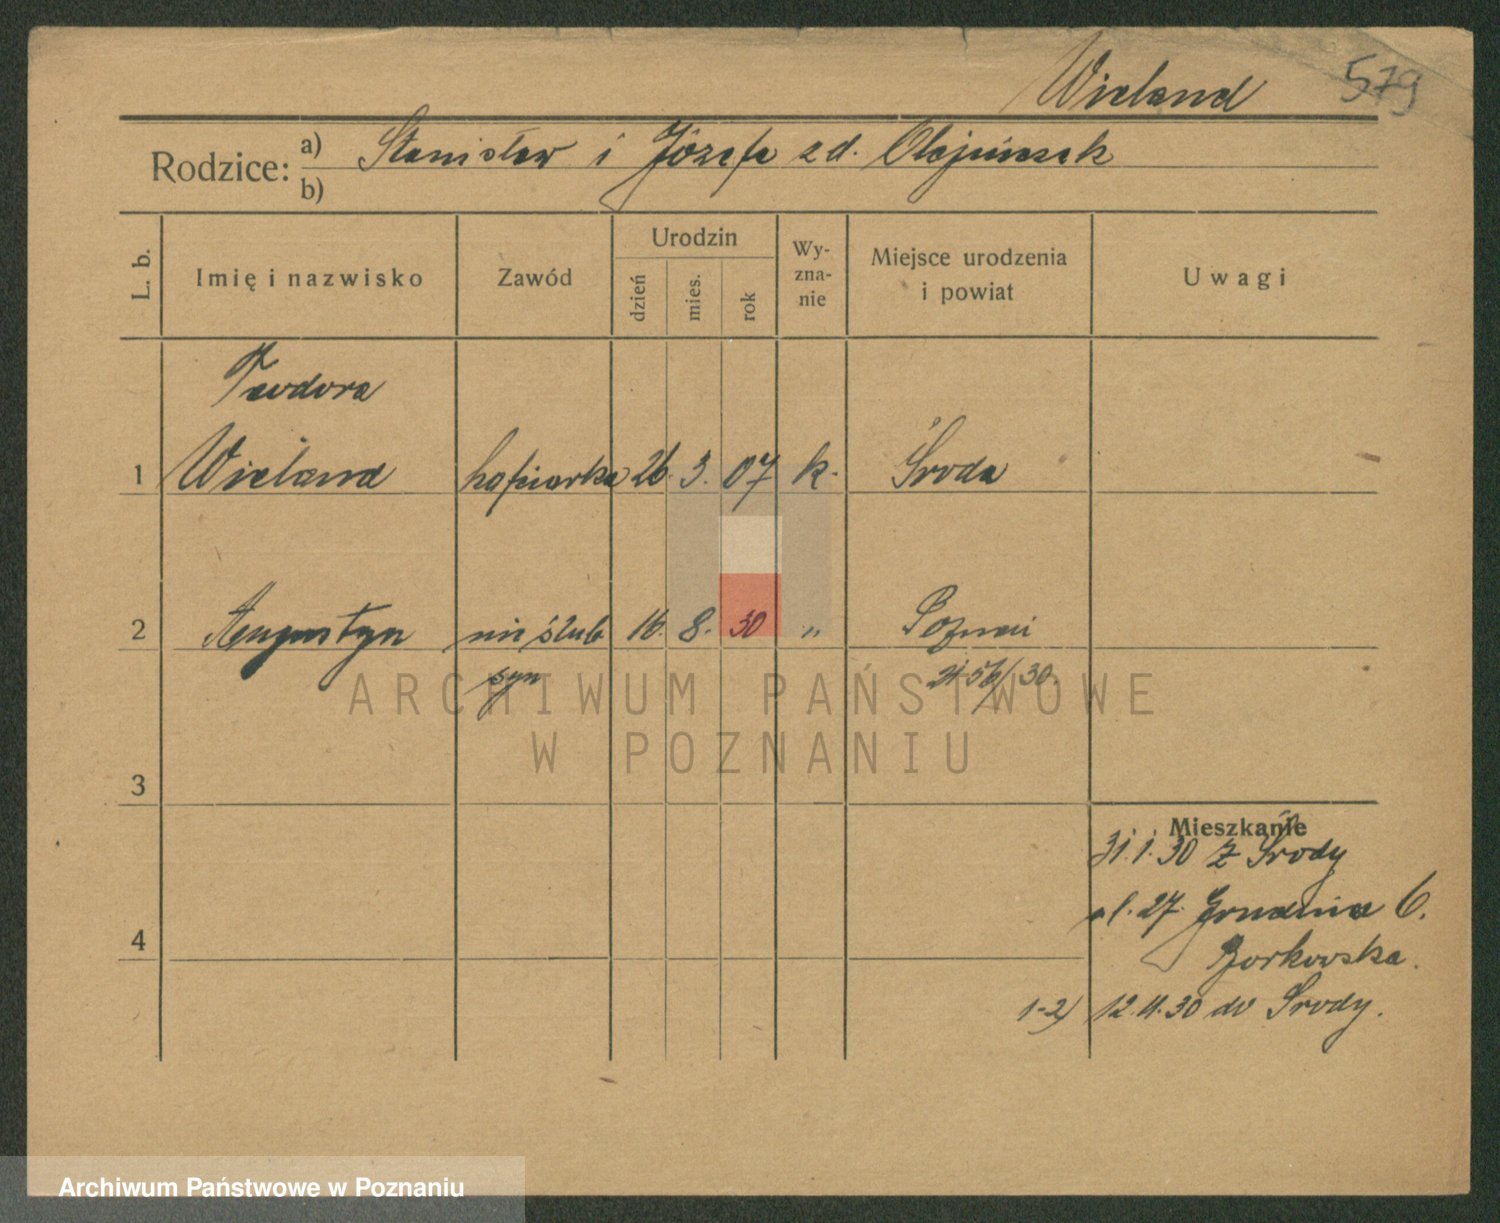 Wieland 579
Rodzice: a) Stanisław i Józefa zd. Olejniczak
b)
L. b. Imię i nazwisko Zawód Urodzin dzień mies. rok Wy-zna-nie Miejsce urodzenia i powiat Uwagi
Teodora
1 Wieland hafciarka 26. 3. 07 k. Środa
2 Augustyn nieślub 16. 8. 30 " Poznań
syn 2456/30.
ARCHIWUM PAŃSTWOWE
W POZNANIU
3
Mieszkanie
31.1.30 z Środy
ul. 27 Grudnia 6.
4
Borkowska.
1-2) 12.11.30 do Środy.
Archiwum Państwowe w Poznaniu